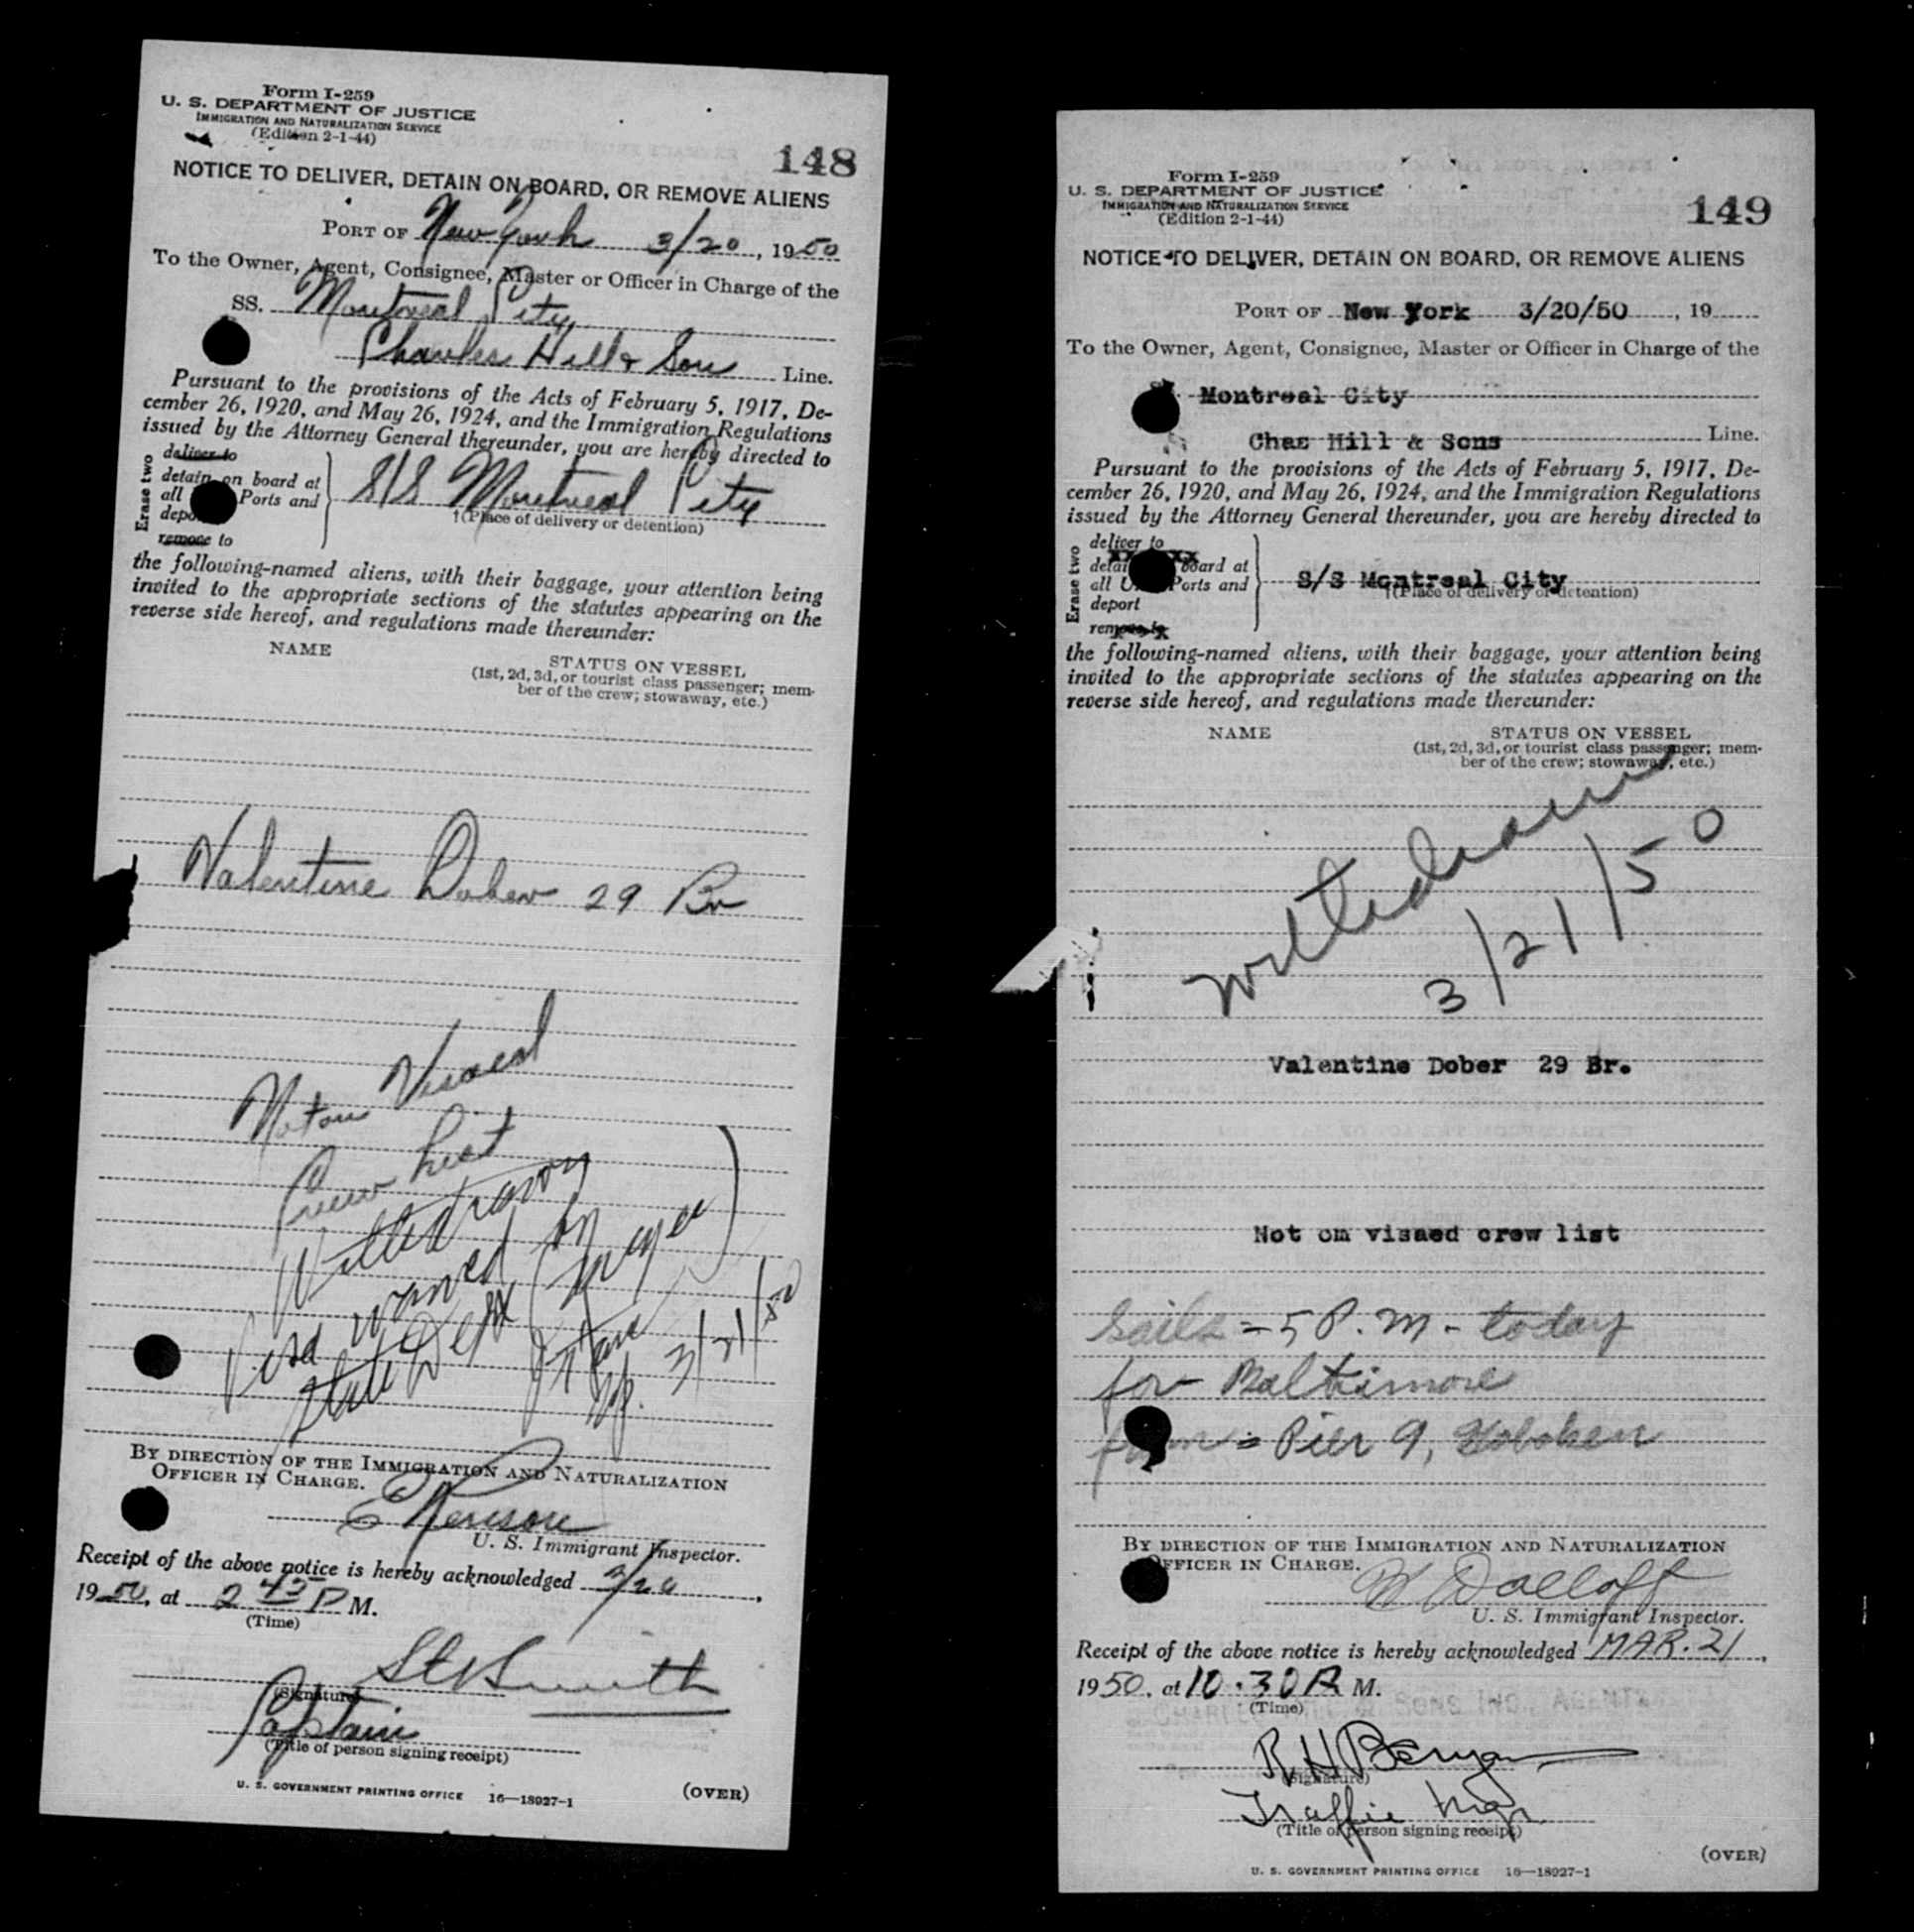 Form I-259
U. S. DEPARTMENT OF JUSTICE
IMMIGRATION AND NATURALIZATION SERVICE
(Edition 2-1-44)
148
NOTICE TO DELIVER, DETAIN ON BOARD, OR REMOVE ALIENS
PORT OF New York 3/20, 1950
To the Owner, Agent, Consignee, Master or Officer in Charge of the
SS. Montreal City,
Charles Hill & Son Line.
Pursuant to the provisions of the Acts of February 5, 1917, De-
cember 26, 1920, and May 26, 1924, and the Immigration Regulations
issued by the Attorney General thereunder, you are hereby directed to
Erase two
deliver to
detain on board at
all Ports and
remove to
S/S Montreal City
†(Place of delivery or detention)
the following-named aliens, with their baggage, your attention being
invited to the appropriate sections of the statutes appearing on the
reverse side hereof, and regulations made thereunder:
NAME
STATUS ON VESSEL
(1st, 2d, 3d, or tourist class passenger; mem-
ber of the crew; stowaway, etc.)
Valentine Dober 29 Br
Not on Visaed
Crew List
Withdrawn
Visa waived by
State Dept
3/21/50
BY DIRECTION OF THE IMMIGRATION AND NATURALIZATION
OFFICER IN CHARGE.
U. S. Immigrant Inspector.
Receipt of the above notice is hereby acknowledged 3/20,
1950, at 2 45 P M.
(Time)
Smith
(Signature)
Captain
(Title of person signing receipt)
U. S. GOVERNMENT PRINTING OFFICE 16—18927-1
(OVER)
Form I-259
U. S. DEPARTMENT OF JUSTICE
IMMIGRATION AND NATURALIZATION SERVICE
(Edition 2-1-44)
149
NOTICE TO DELIVER, DETAIN ON BOARD, OR REMOVE ALIENS
PORT OF New York 3/20/50, 19
To the Owner, Agent, Consignee, Master or Officer in Charge of the
Montreal City
Chas Hill & Sons Line.
Pursuant to the provisions of the Acts of February 5, 1917, De-
cember 26, 1920, and May 26, 1924, and the Immigration Regulations
issued by the Attorney General thereunder, you are hereby directed to
Erase two
deliver to
board at
all Ports and
deport
remove to
S/S Montreal City
†(Place of delivery or detention)
the following-named aliens, with their baggage, your attention being
invited to the appropriate sections of the statutes appearing on the
reverse side hereof, and regulations made thereunder:
NAME
STATUS ON VESSEL
(1st, 2d, 3d, or tourist class passenger; mem-
ber of the crew; stowaway, etc.)
Withdrawn
3/21/50
Valentine Dober 29 Br.
Not on visaed crew list
Sails = 5 P.M - today
for Baltimore
from = Pier 9, Hoboken
BY DIRECTION OF THE IMMIGRATION AND NATURALIZATION
OFFICER IN CHARGE.
U. S. Immigrant Inspector.
Receipt of the above notice is hereby acknowledged MAR. 21,
1950, at 10:30 A M.
(Time)
R H
(Signature)
Traffic Mgr
(Title of person signing receipt)
(OVER)
U. S. GOVERNMENT PRINTING OFFICE 16—18927-1